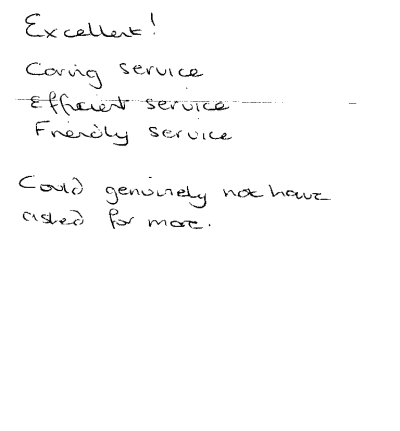 Excellent!
Caring service
Efficient service
Friendly service
Could genuinely not have
asked for more.